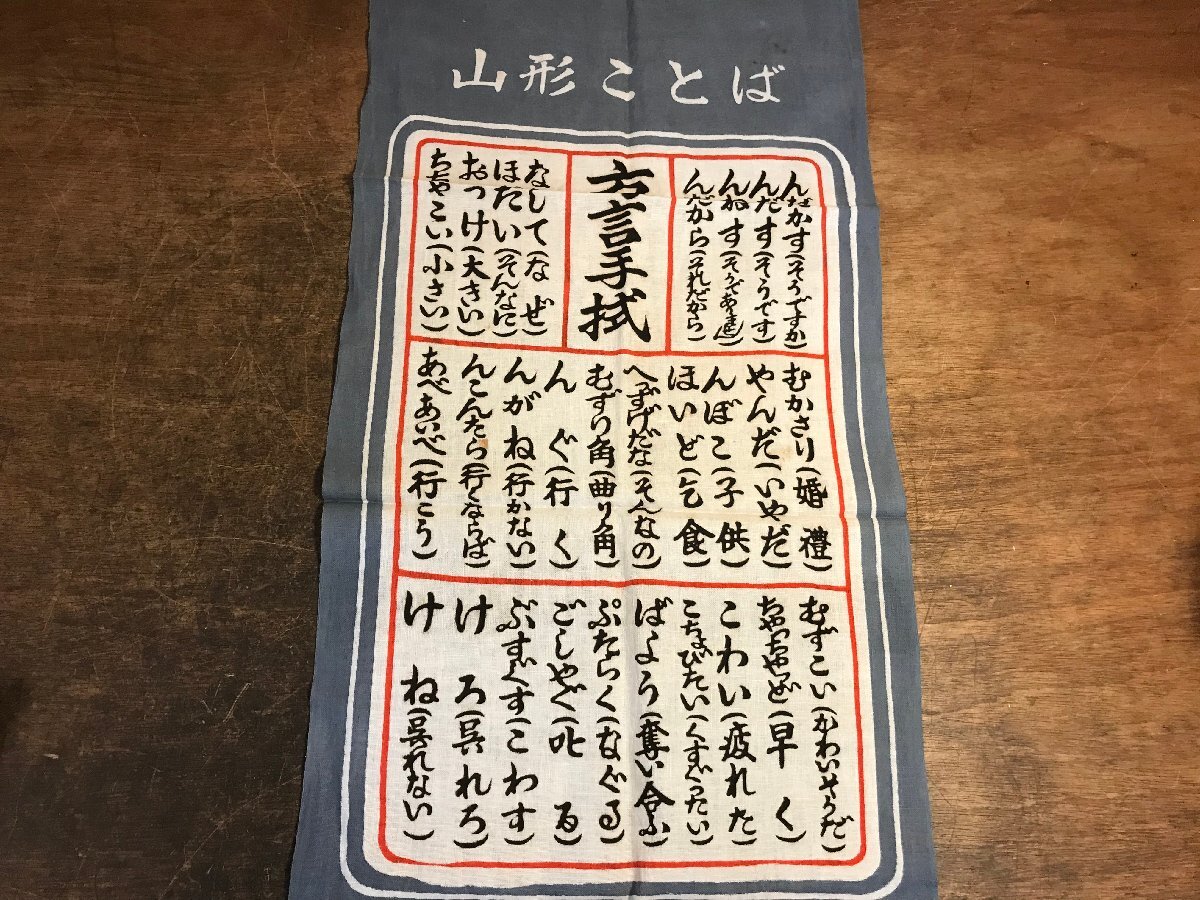 山形ことば
んだかす(そうですか)
んだす(そうです)
んねす(そうでありません)
んだから(それだから)
方言手拭
なして(なぜ)
ほだい(そんなに)
おっけ(大きい)
ちゃこい(小さい)
むかさり(婚禮)
やんだ(いやだ)
んぼこ(子供)
ほいど(乞食)
へづげだな(そんなの)
むずり角(曲り角)
んぐ(行く)
んがね(行かない)
んこんたら(行くならば)
あべあいべ(行こう)
むずこい(かわいそうだ)
ちゃっちゃど(早く)
こわい(疲れた)
こちょびたい(くすぐったい)
ばよう(奪い合ふ)
ぷたらく(なぐる)
ごしゃぐ(叱る)
ぶすぐす(こわす)
けろ(呉れろ)
けね(呉れない)